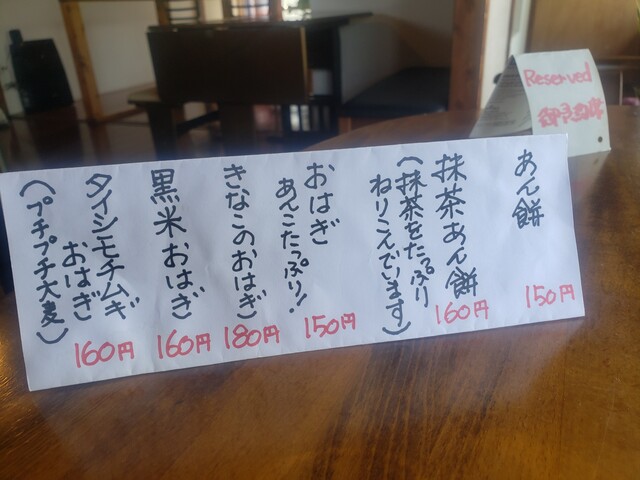 あん餅
150円
抹茶あん餅
(抹茶をたっぷり
ねりこんでいます)
160円
おはぎ
あんこたっぷり!
150円
きなこのおはぎ
180円
黒米おはぎ
160円
タイシモチムギ
おはぎ
(プチプチ大麦)
160円
Reserved
御予約席